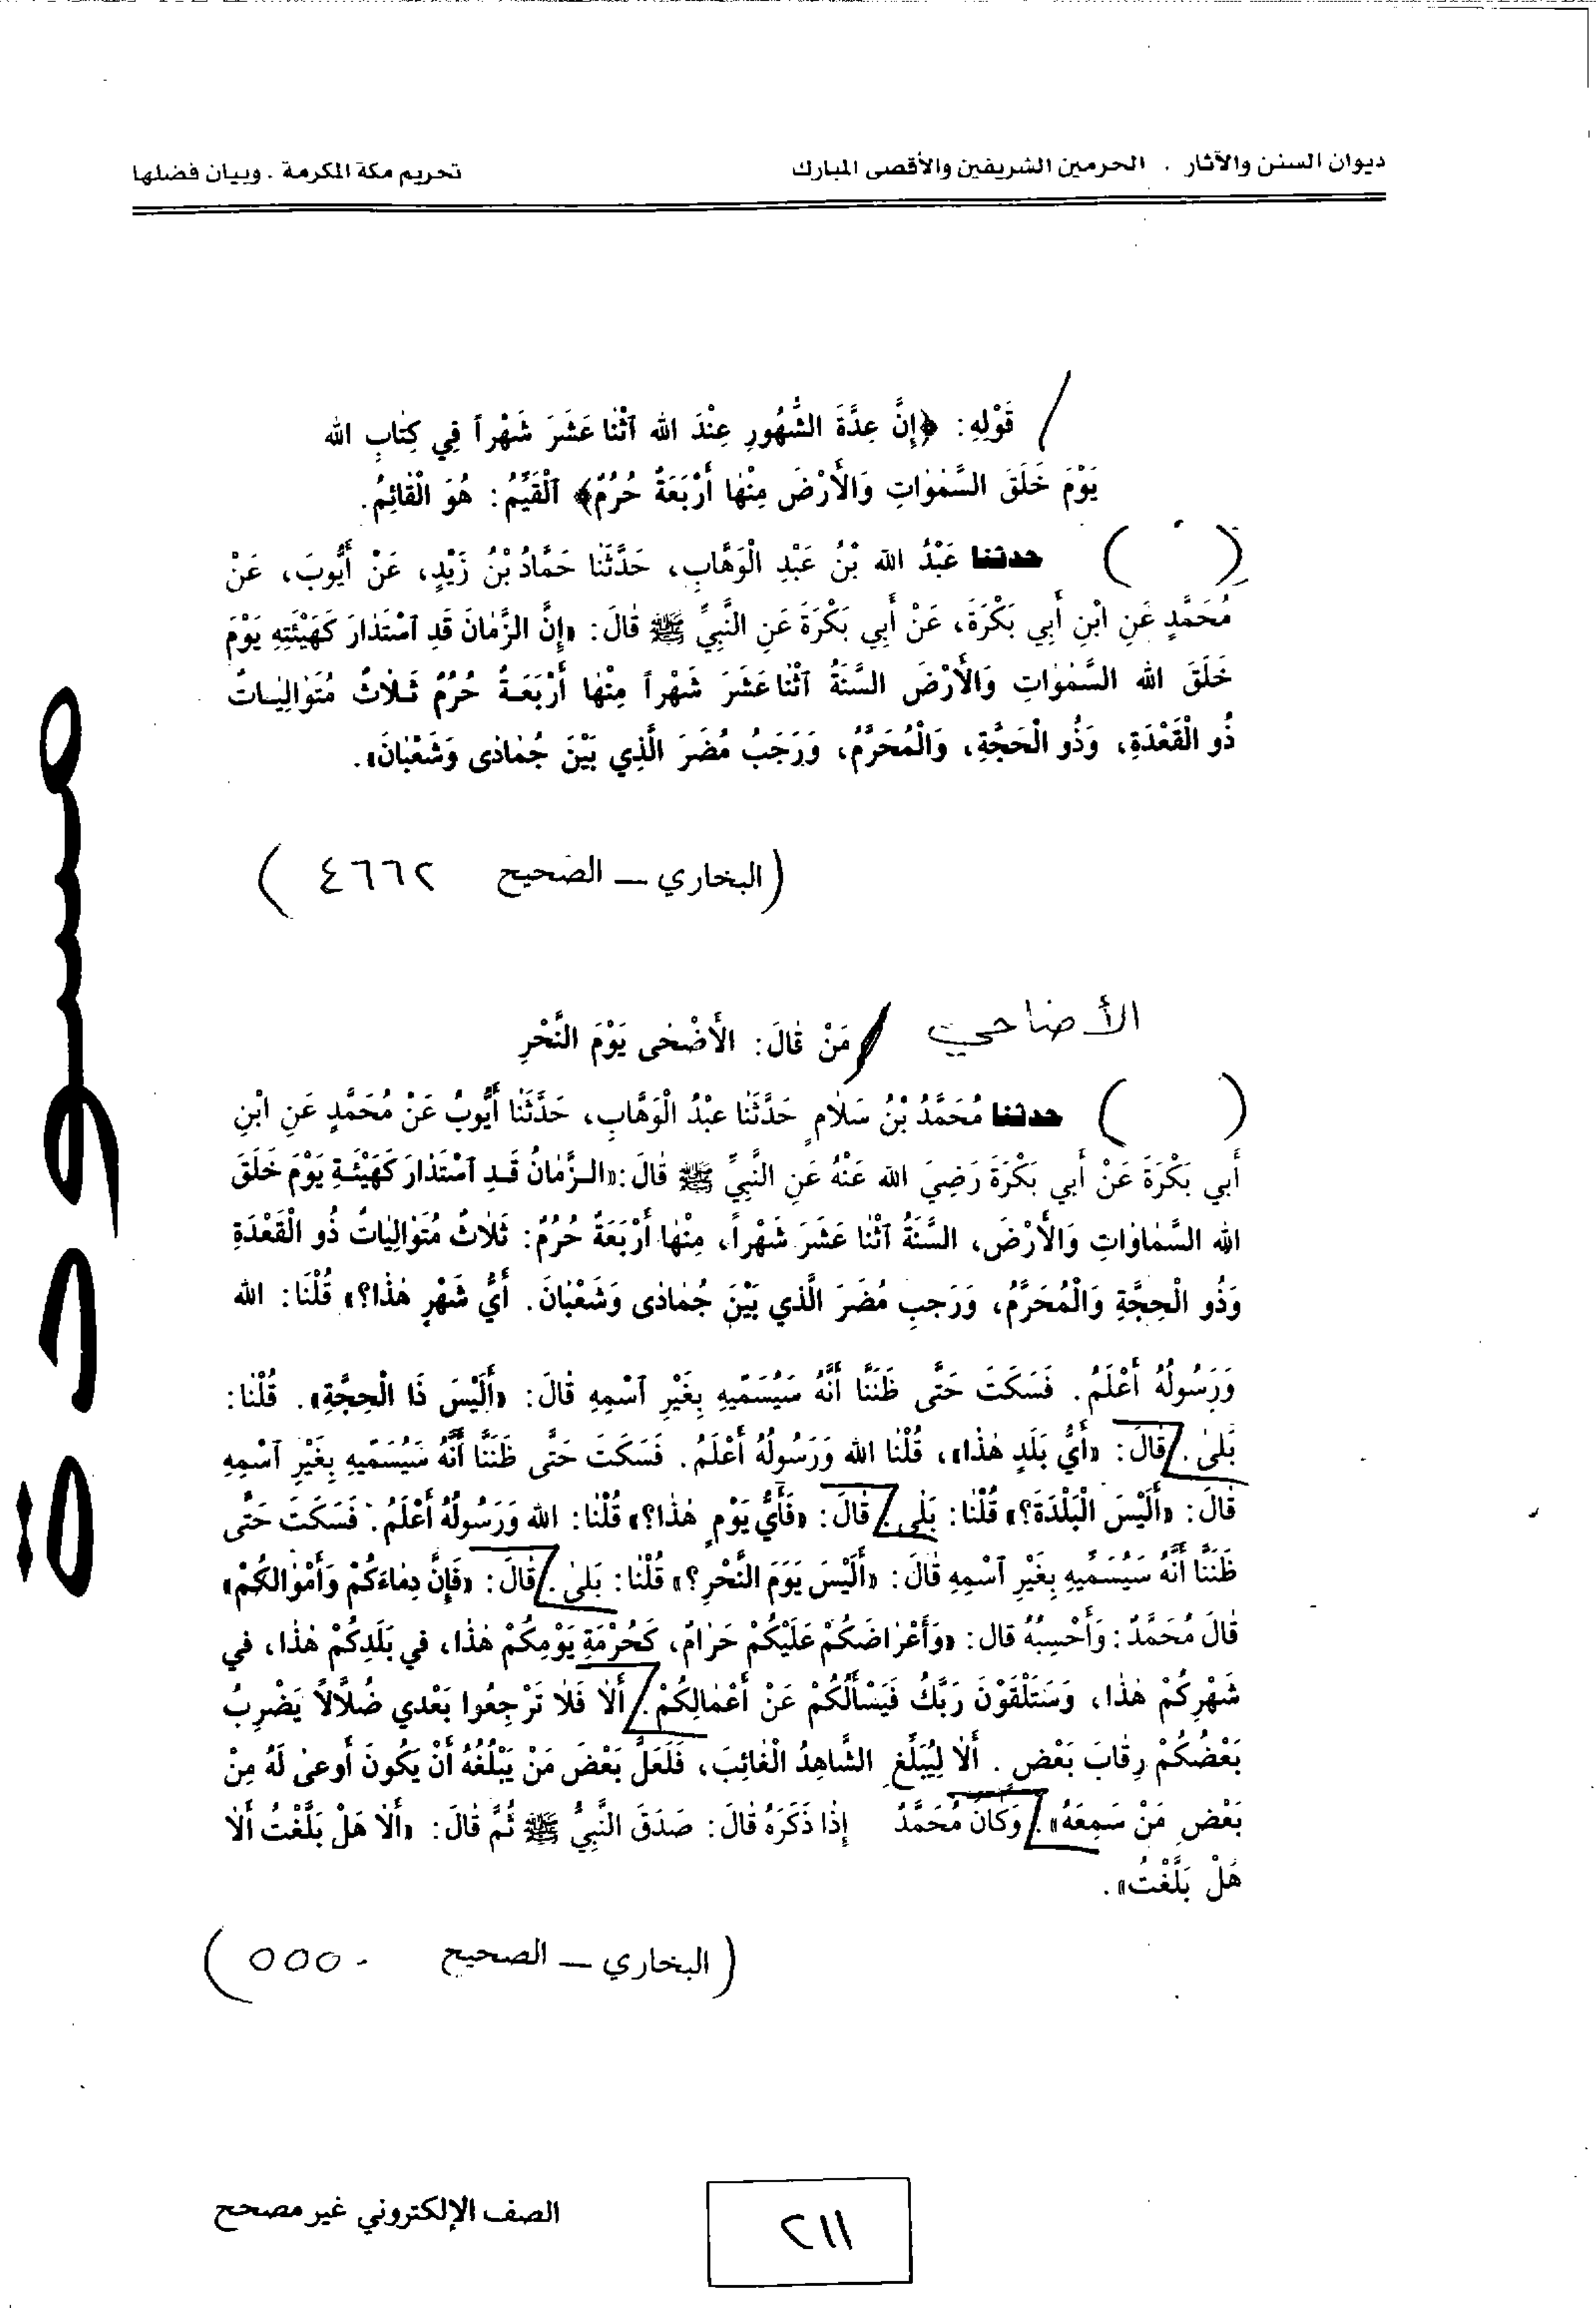 ديوان السنن والآثار . الحرمين الشريفين والأقصى المبارك
تحريم مكة المكرمة . وبيان فضلها
/ قَوْلِهِ: ﴿إِنَّ عِدَّةَ الشُّهُورِ عِنْدَ الله ٱثْنَا عَشَرَ شَهْراً فِي كِتَابِ الله
يَوْمَ خَلَقَ السَّمٰوَاتِ وَالأَرْضَ مِنْهَا أَرْبَعَةٌ حُرُمٌ﴾ ٱلْقَيِّمُ: هُوَ الْقَائِمُ.
( ) حدثنا عَبْدُ الله بْنُ عَبْدِ الْوَهَّابِ، حَدَّثَنَا حَمَّادُ بْنُ زَيْدٍ، عَنْ أَيُّوبَ، عَنْ
مُحَمَّدٍ عَنِ ابْنِ أَبِي بَكْرَةَ، عَنْ أَبِي بَكْرَةَ عَنِ النَّبِيِّ ﷺ قَالَ: «إِنَّ الزَّمَانَ قَدِ ٱسْتَدَارَ كَهَيْئَتِهِ يَوْمَ
خَلَقَ الله السَّمٰوَاتِ وَالأَرْضَ السَّنَةُ ٱثْنَا عَشَرَ شَهْراً مِنْهَا أَرْبَعَـةٌ حُرُمٌ ثَـلَاثٌ مُتَوَالِيَـاتٌ
ذُو الْقَعْدَةِ، وَذُو الْحَجَّةِ، وَالْمُحَرَّمُ، وَرَجَبُ مُضَرَ الَّذِي بَيْنَ جُمَادَى وَشَعْبَانَ».
(البخاري — الصحيح ٤٦٦٢ )
الأضاحي / مَنْ قَالَ: الأَضْحَى يَوْمَ النَّحْرِ
( ) حدثنا مُحَمَّدُ بْنُ سَلَامٍ حَدَّثَنَا عبْدُ الْوَهَّابِ، حَدَّثَنَا أَيُّوبُ عَنْ مُحَمَّدٍ عَنِ ابْنِ
أَبي بَكْرَةَ عَنْ أَبي بَكْرَةَ رَضِيَ الله عَنْهُ عَنِ النَّبِيِّ ﷺ قَالَ: «الـزَّمَانُ قَـدِ ٱسْتَدَارَ كَهَيْئَـةِ يَوْمَ خَلَقَ
الله السَّمَاوَاتِ وَالأَرْضَ، السَّنَةُ ٱثْنَا عَشَرَ شَهْراً، مِنْهَا أَرْبَعَةٌ حُرُمٌ: ثَلَاثٌ مُتَوَالِيَاتٌ ذُو الْقَعْدَةِ
وَذُو الْحِجَّةِ وَالْمُحَرَّمُ، وَرَجبِ مُضَرَ الَّذي بَيْنَ جُمَادَى وَشَعْبَانَ. أَيُّ شَهْرٍ هٰذَا؟» قُلْنَا: الله
وَرَسُولُهُ أَعْلَمُ. فَسَكَتَ حَتَّى ظَنَنَّا أَنَّهُ سَيُسَمِّيهِ بِغَيْرِ ٱسْمِهِ قَالَ: «أَلَيْسَ ذَا الْحِجَّةِ». قُلْنَا:
بَلى. قَالَ: «أَيُّ بَلَدٍ هٰذَا»، قُلْنَا الله وَرَسُولُهُ أَعْلَمُ. فَسَكَتَ حَتَّى ظَنَنَّا أَنَّهُ سَيُسَمّيهِ بِغَيْرِ ٱسْمِهِ
قَالَ: «أَلَيْسَ الْبَلْدَةَ؟» قُلْنَا: بَلى. قَالَ: «فَأَيُّ يَوْمٍ هٰذَا؟» قُلْنَا: الله وَرَسُولُهُ أَعْلَمُ. فَسَكَتَ حَتَّى
ظَنَنَّا أَنَّهُ سَيُسَمِّيهِ بِغَيْرِ ٱسْمِهِ قَالَ: «أَلَيْسَ يَوَمَ النَّحْرِ؟» قُلْنَا: بَلىٰ. قَالَ: «فَإِنَّ دِمَاءَكُمْ وَأَمْوَالكُمْ»
قَالَ مُحَمَّدٌ: وَأَحْسِبُهُ قال: «وَأَعْرَاضَكُمْ عَلَيْكُمْ حَرَامٌ، كَحُرْمَةِ يَوْمِكُمْ هٰذَا، في بَلَدِكُمْ هٰذَا، في
شَهْرِكُمْ هٰذَا، وَسَتَلْقَوْنَ رَبَّكُ فَيَسْأَلُكُمْ عَنْ أَعْمَالِكُمْ. أَلَا فَلَا تَرْجِعُوا بَعْدي ضُلَّالاً يَضْرِبُ
بَعْضُكُمْ رِقَابَ بَعْضٍ. أَلَا لِيُبَلِّغِ الشَّاهِدُ الْغَائِبَ، فَلَعَلَّ بَعْضَ مَنْ يَبْلُغُهُ أَنْ يَكُونَ أَوعىٰ لَهُ مِنْ
بَعْضِ مَنْ سَمِعَهُ». وَكَانَ مُحَمَّدٌ إِذَا ذَكَرَهُ قَالَ: صَدَقَ النَّبِيُّ ﷺ ثُمَّ قَالَ: «أَلَا هَلْ بَلَّغْتُ أَلَا
هَلْ بَلَّغْتُ».
(البخاري — الصحيح ٥٥٥٠ )
مسودة
الصف الإلكتروني غير مصحح
٢١١